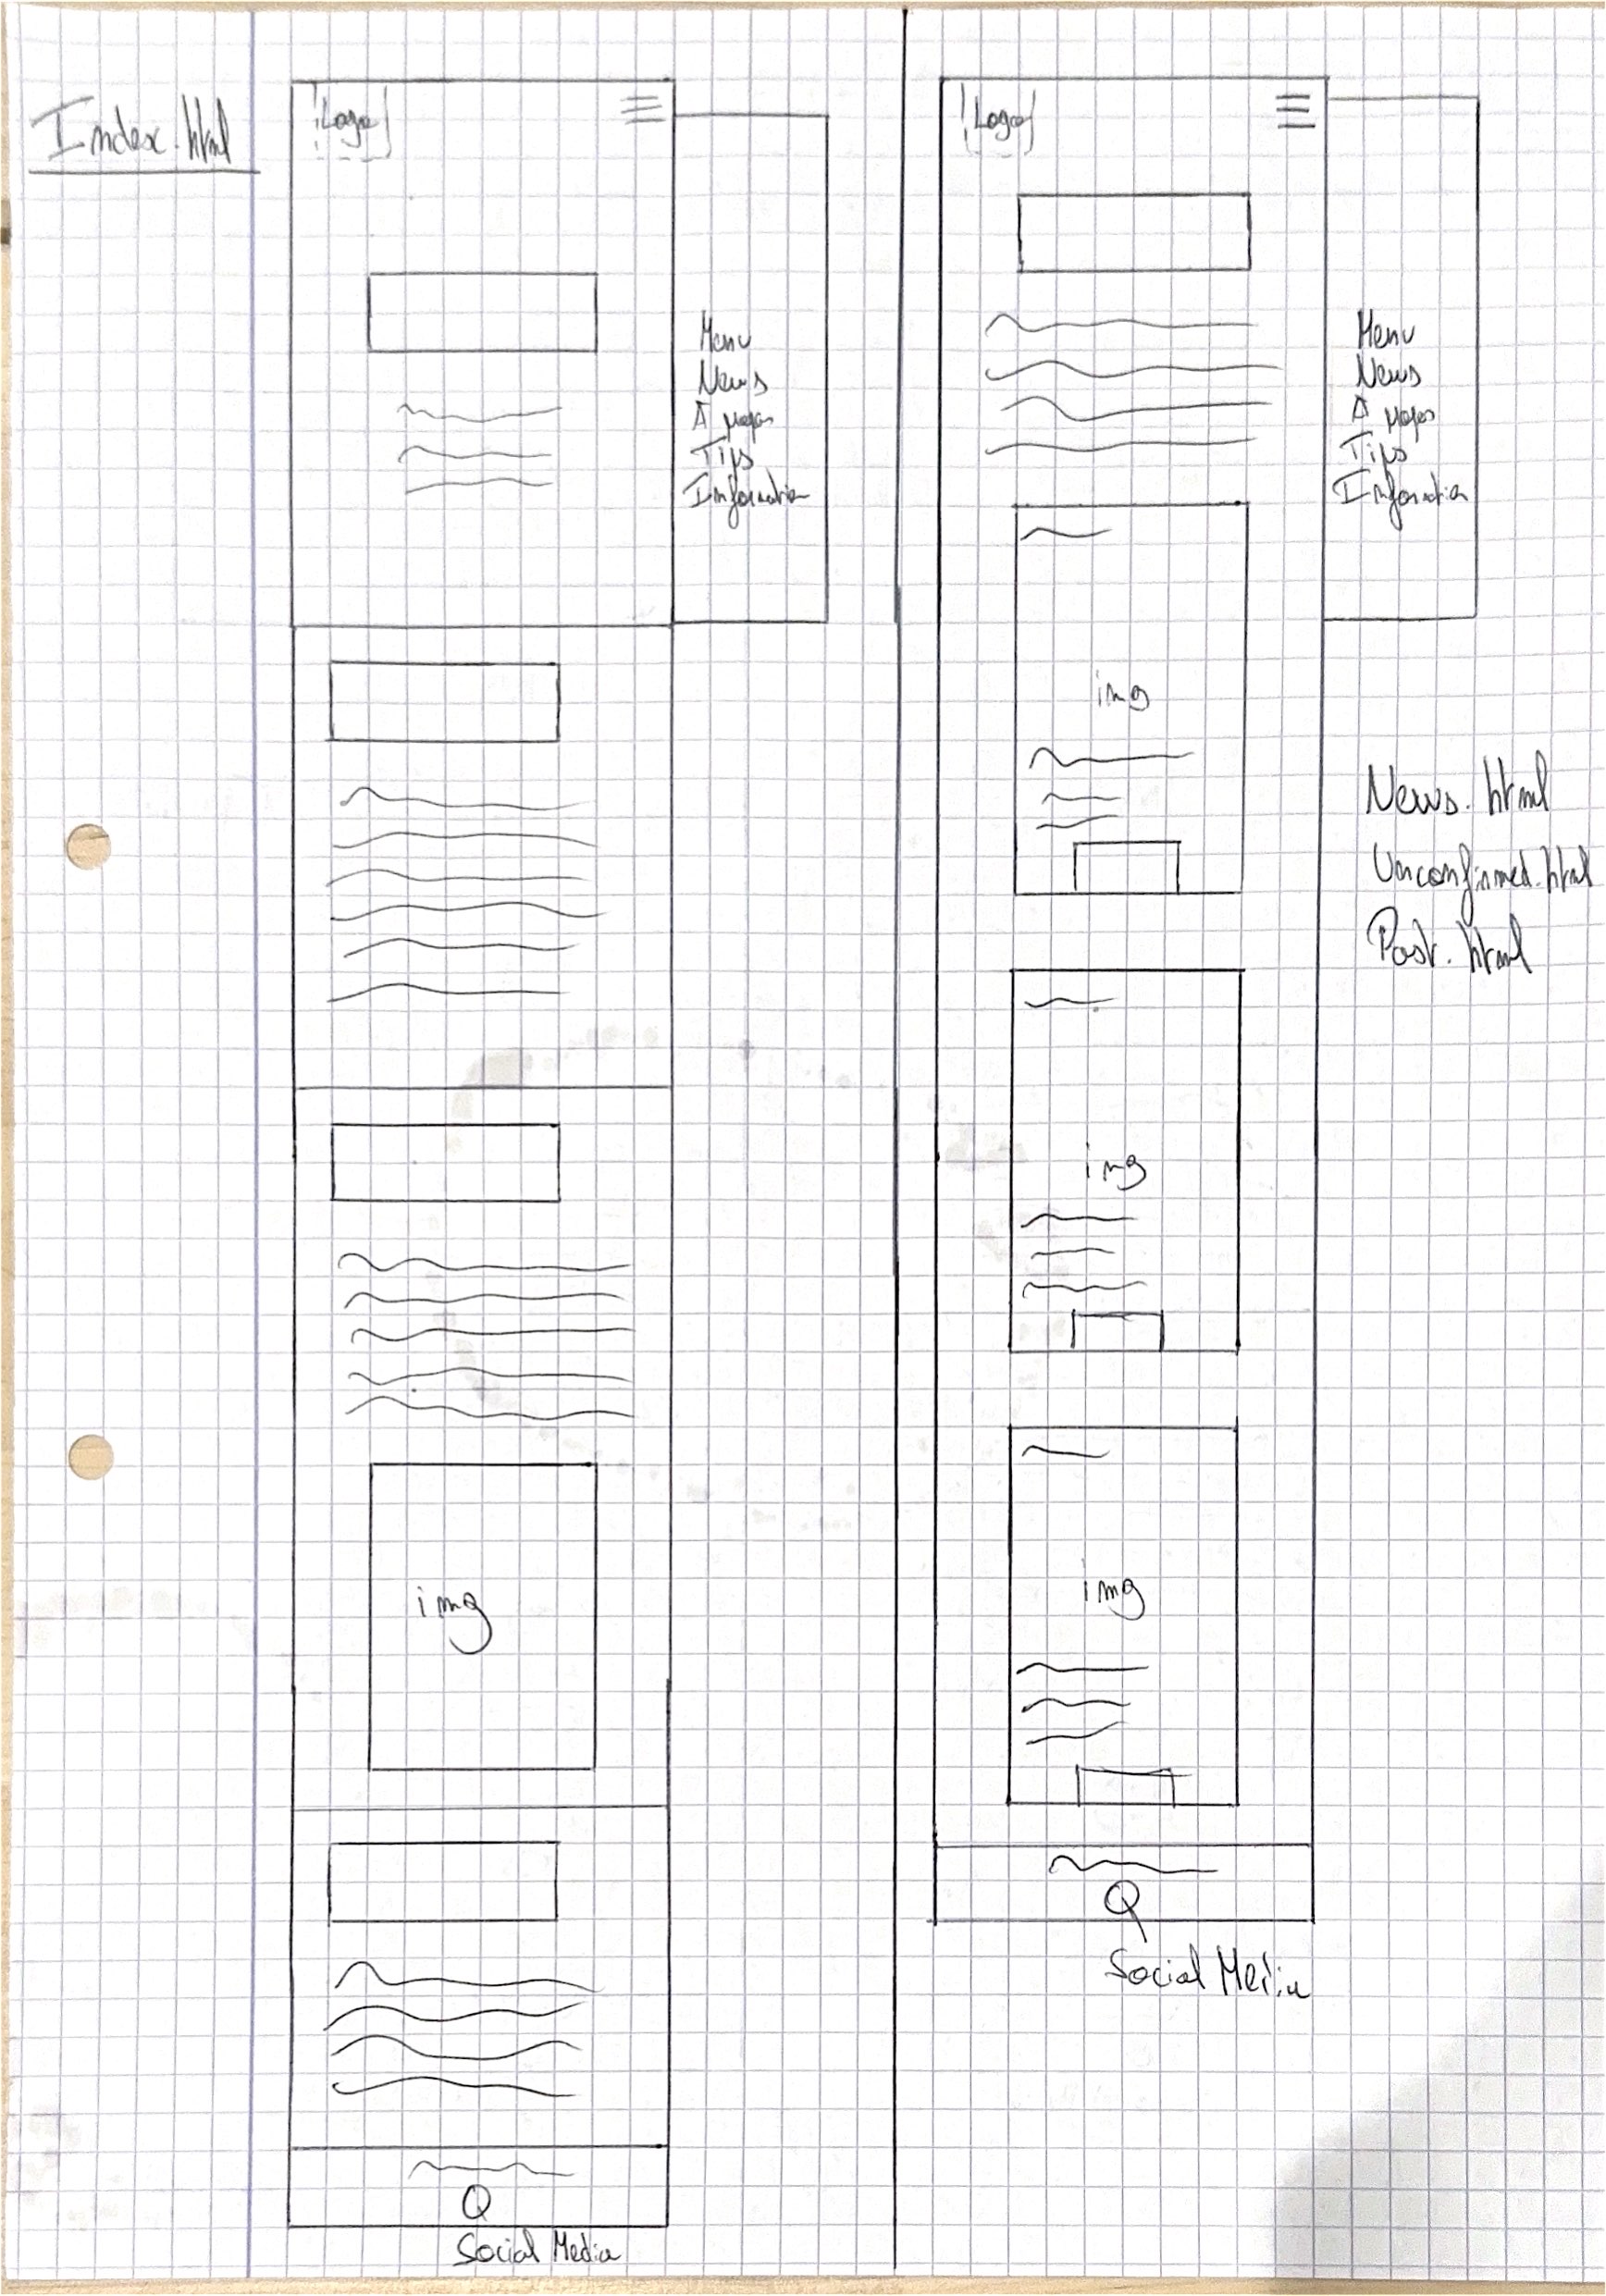 Index.html
Logo
Menu
News
A propos
Tips
Information
img
Social Media
Logo
Menu
News
A propos
Tips
Information
img
News.html
Unconfirmed.html
Post.html
img
img
Social Media